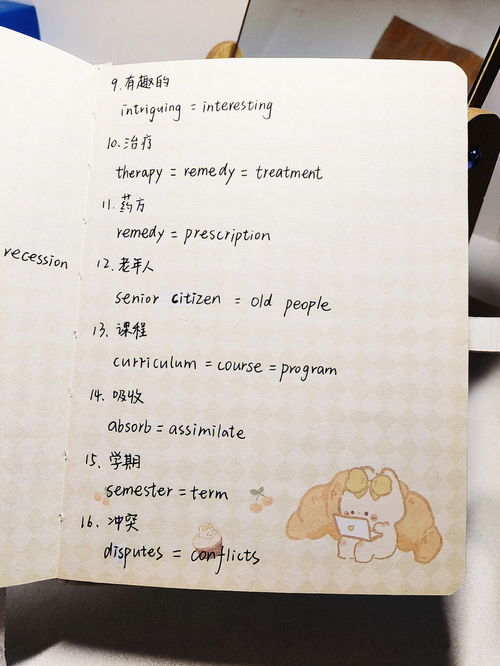 recession
9.有趣的
intriguing = interesting
10.治疗
therapy = remedy = treatment
11.药方
remedy = prescription
12.老年人
senior citizen = old people
13.课程
curriculum = course = program
14.吸收
absorb = assimilate
15.学期
semester = term
16.冲突
disputes = conflicts